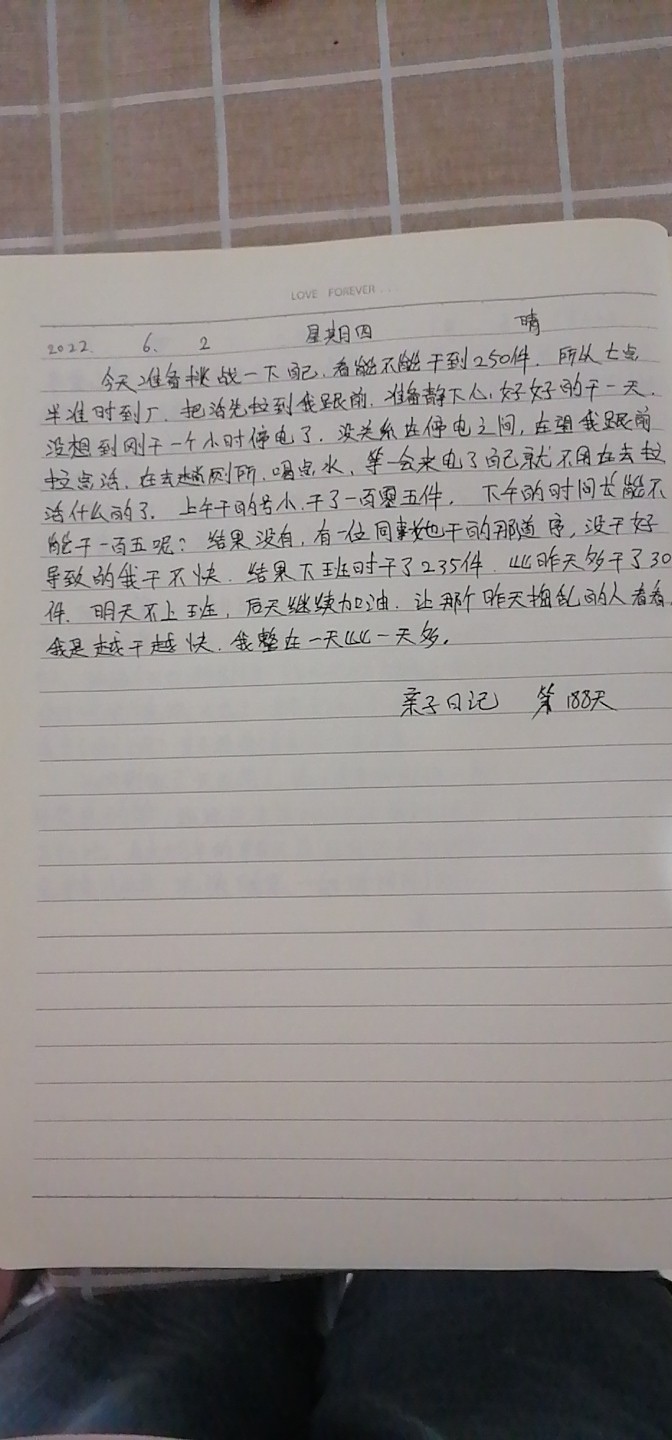 LOVE FOREVER...
2022. 6. 2 星期四 晴
今天准备挑战一下自己,看能不能干到250件.所以七点
半准时到厂.把活先拉到我跟前.准备静下心,好好的干一天.
没想到刚干一个小时停电了.没关系在停电之间,在望我跟前
拉点活,在去趟厕所,喝点水,等一会来电了自己就不用在去拉
活什么的了.上午干的号小,干了一百零五件,下午的时间长能不
能干一百五呢?结果没有,有一位同事她干的那道序,没干好
导致的我干不快.结果下班时干了235件.比昨天多干了30
件.明天不上班,后天继续加油.让那个昨天捣乱的人看看.
我是越干越快.我整在一天比一天多.
亲子日记 第188天